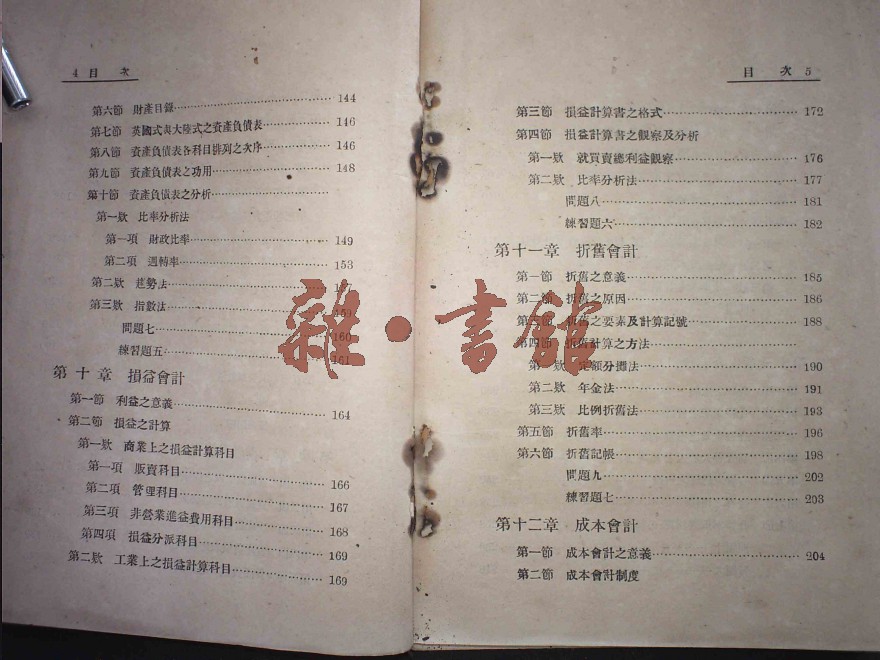 4 目 次
第六節 財產目錄 144
第七節 英國式與大陸式之資產負債表 146
第八節 資產負債表各科目排列之次序 146
第九節 資產負債表之功用 148
第十節 資產負債表之分析
第一欵 比率分析法
第一項 財政比率 149
第二項 週轉率 153
第二欵 趨勢法
第三欵 指數法 151
問題七 160
練習題五 161
第十章 損益會計
第一節 利益之意義 164
第二節 損益之計算
第一欵 商業上之損益計算科目
第一項 販賣科目 166
第二項 管理科目 167
第三項 非營業進益費用科目 168
第四項 損益分派科目 169
第二欵 工業上之損益計算科目 169
目 次 5
第三節 損益計算書之格式 172
第四節 損益計算書之觀察及分析
第一欵 就買賣總利益觀察 176
第二欵 比率分析法 177
問題八 181
練習題六 182
第十一章 折舊會計
第一節 折舊之意義 185
第二節 折舊之原因 186
第三節 折舊之要素及計算記號 188
第四節 折舊計算之方法
第一欵 定額分攤法 190
第二欵 年金法 191
第三欵 比例折舊法 193
第五節 折舊率 196
第六節 折舊記帳 198
問題九 202
練習題七 203
第十二章 成本會計
第一節 成本會計之意義 204
第二節 成本會計制度
雜·書館